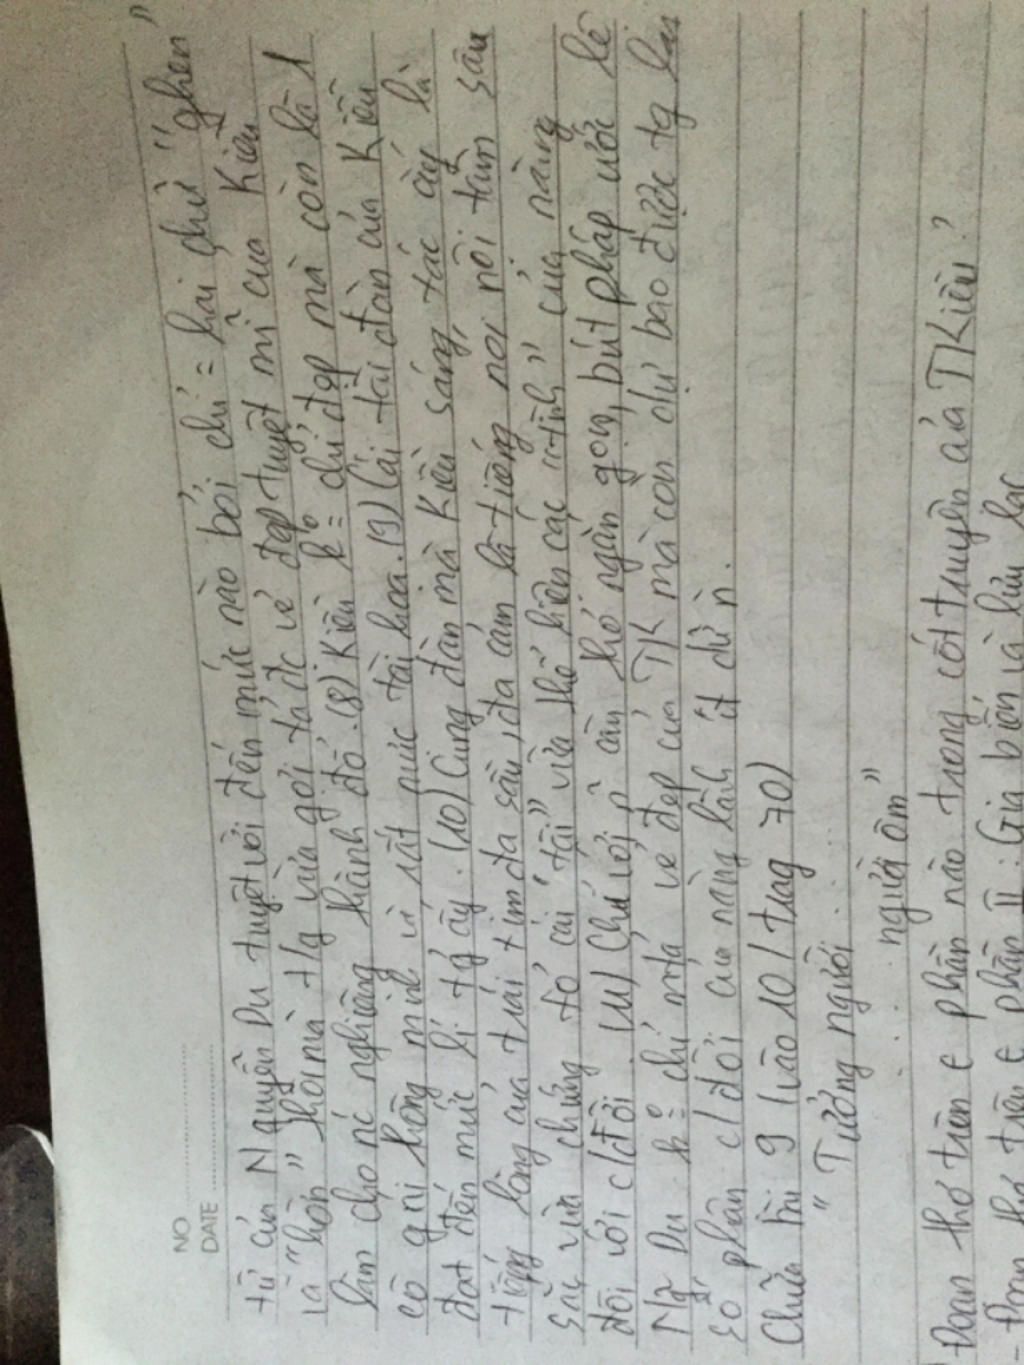 NO
DATE
từ của Nguyễn Du tuyệt vời đến mức nào bởi chỉ = hai chữ "ghen"
và "hờn" thôi mà t/g vừa gợi tả đc vẻ đẹp tuyệt mĩ của Kiều
làm cho nc nghiêng thành đổ. (8) Kiều k° = chỉ đẹp mà còn là 1
cô gái thông minh và rất mực tài hoa. (9) Cái tài đàn của Kiều
đạt đến mức lí tg ấy. (10) Cung đàn mà Kiều sáng tác ấy là
tiếng lòng của trái tim đa sầu, đa cảm là tiếng nơi nỗi tâm sâu
sắc vừa chứng tỏ cái "tài" vừa thể hiện các "tình" của nàng
đối với c/đời. (11) Chỉ với câu thơ ngắn gọn, bút pháp ước lệ
Ng Du k° = chỉ m/tả vẻ đẹp của TK mà còn dự báo được tg lai
số phận c/đời của nàng lành ít dữ n.
Chữa bài 9 (vào 10/trag 70)
"Tưởng người . . . .
. . . . . người ôm"
Đoạn thơ trên ∈ phần nào trong cốt truyện của TKiều?
- Đoạn thơ trên ∈ phần II: Gia biến và lưu lạc